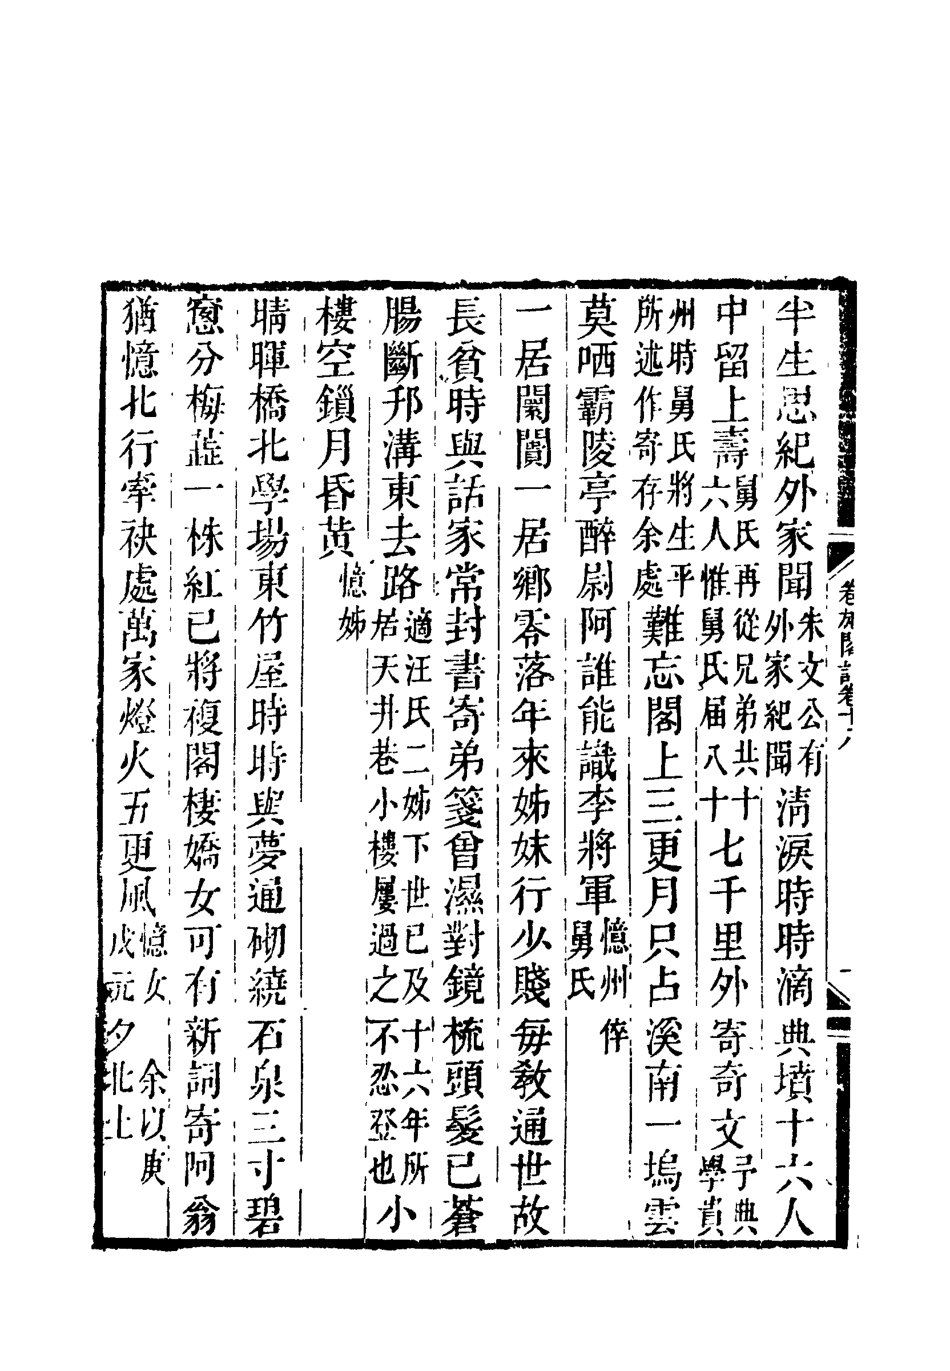 卷施閣詩卷十八
半生思紀外家聞朱文公有外家紀聞清淚時時滴典墳十六人
中留上壽舅氏再從兄弟共十六人惟舅氏届八十七千里外寄奇文予典學貴
州時舅氏將生平所述作寄存余處難忘閣上三更月只占溪南一塢雲
莫哂霸陵亭醉尉阿誰能識李將軍憶州倅舅氏
一居闤闠一居鄉零落年來姊妹行少賤每敎通世故
長貧時與話家常封書寄弟箋曾濕對鏡梳頭髮已蒼
腸斷邗溝東去路適汪氏二姊下世已及十六年所居天井巷小樓屢過之不忍登也小
樓空鎖月昏黃憶姊
晴暉橋北學場東竹屋時時與夢通砌繞石泉三寸碧
窻分梅蘂一株紅已將複閣棲嬌女可有新詞寄阿翁
猶憶北行牽袂處萬家燈火五更風憶女 余以庚戌元夕北上